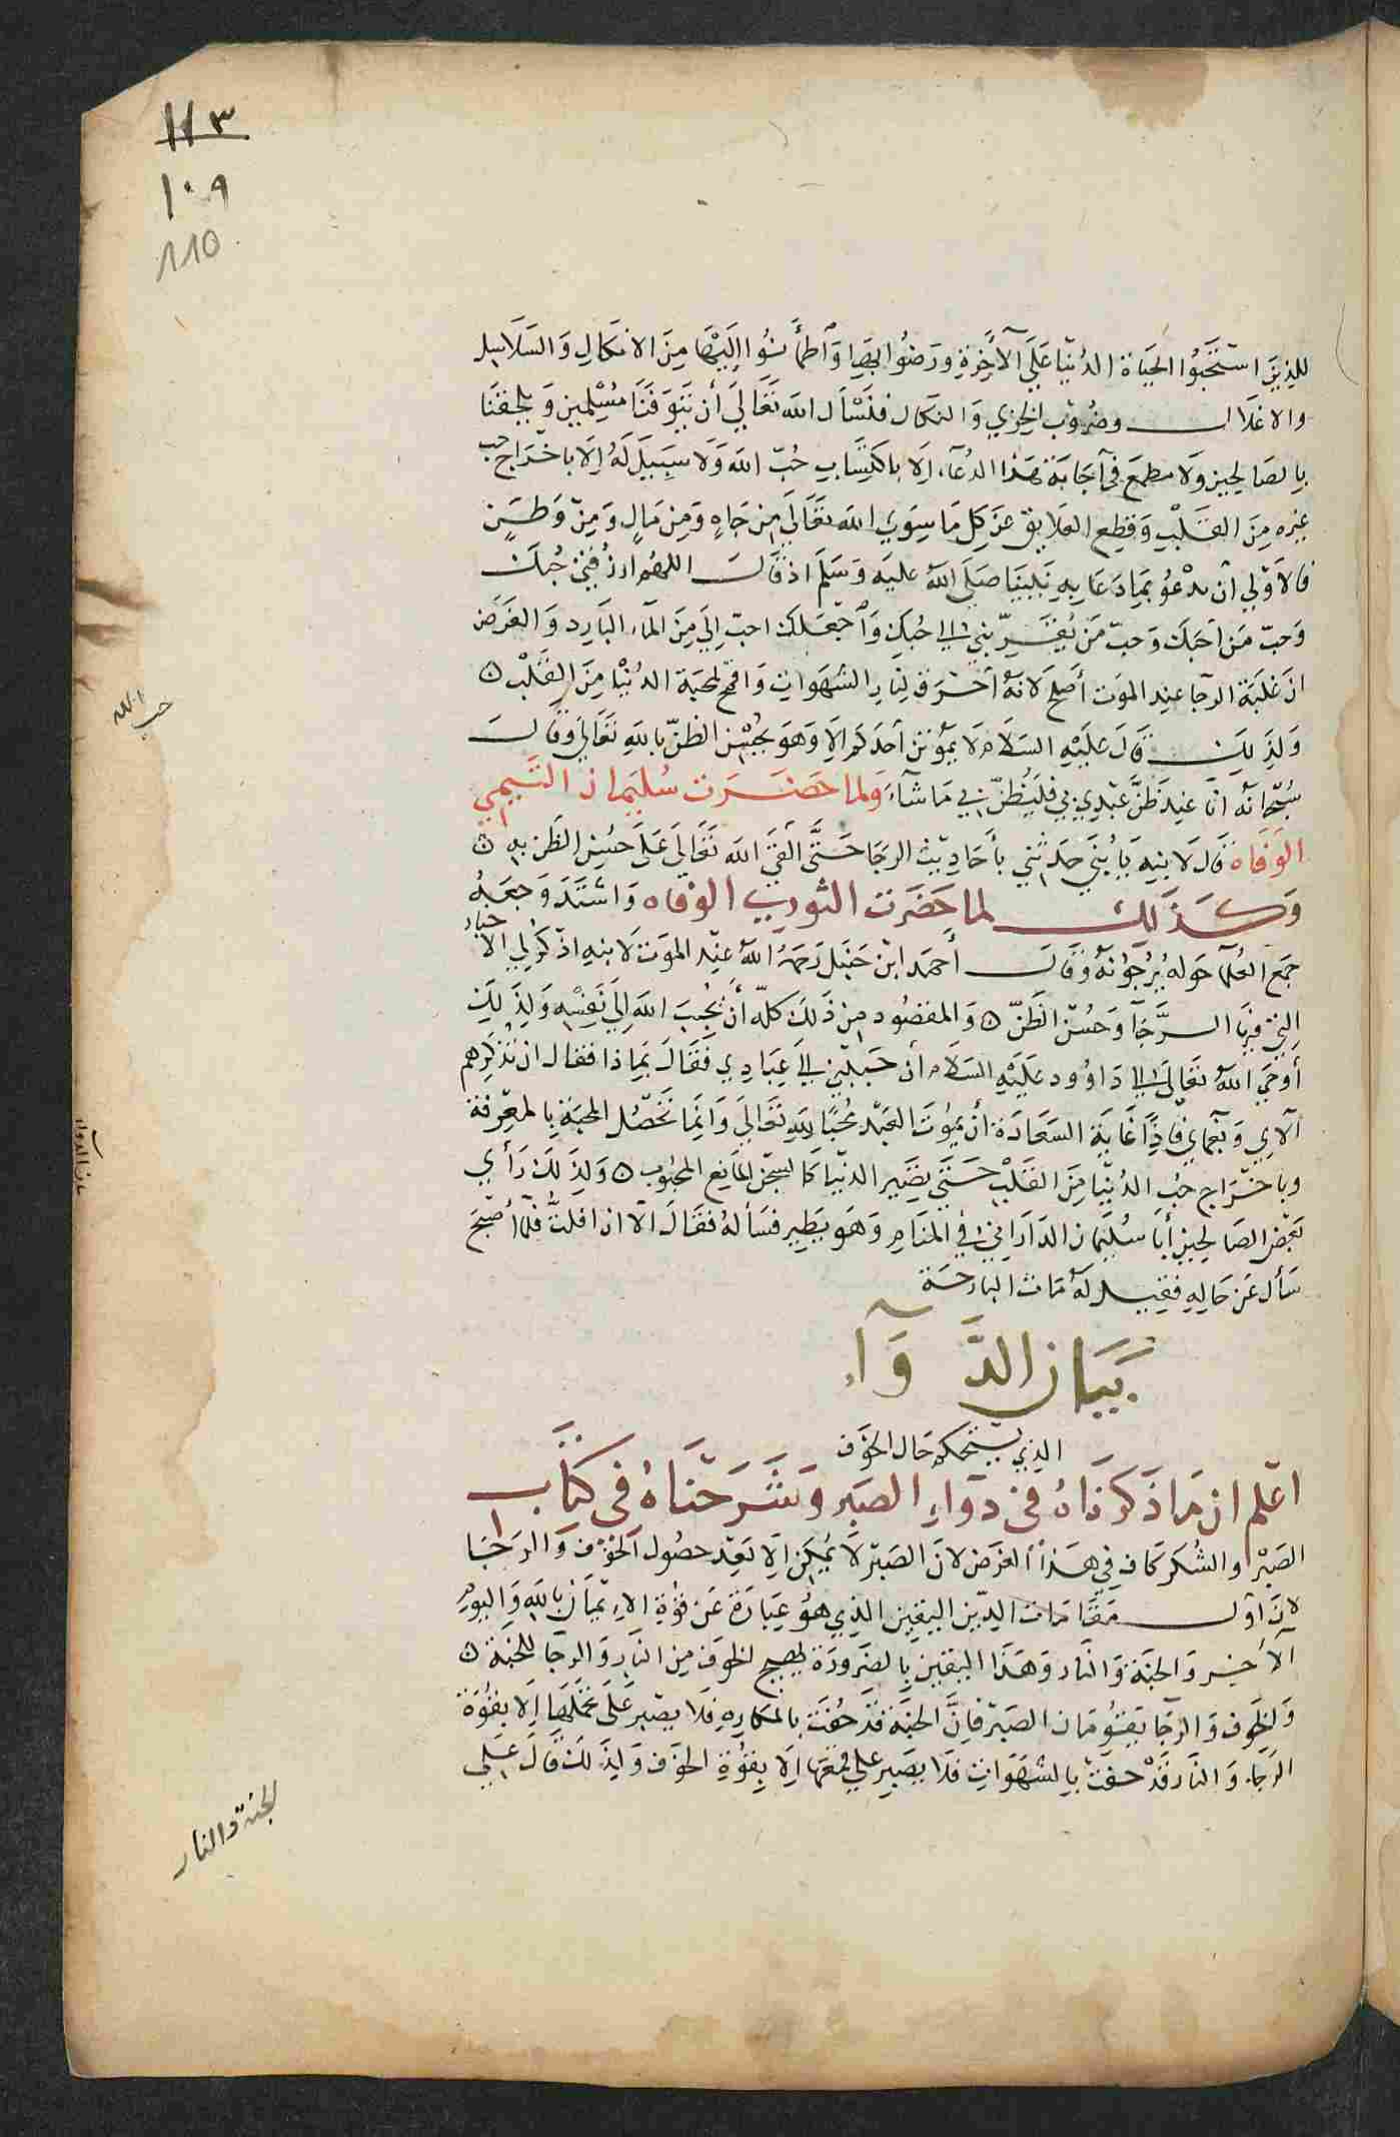 ١١٣
١٠٩
110
للذين استحبوا الحياة الدنيا علي الآخرة ورضوا بها واطمأنوا اليها من الانكال والسلاسل
والاغلال وضروب الخزي والنكال فنسأل الله تعالى أن يتوفنا مسلمين ويلحقنا
بالصالحين ولا مطمع في اجابة هذا الدعاء إلا باكتساب حب الله ولا سبيل له إلا باخراج حب
غيره من القلب وقطع العلايق عن كل ما سوي الله تعالى من جاه ومن مال ومن وطن
فالاولي أن يدعو بما دعا به نبينا صلى الله عليه وسلم اذ قال اللهم ارزقني حبك
وحب من أحبك وحب من يقربني الي حبك واجعل حبك احب إلي من الماء البارد والغرض
ان غلبة الرجا عند الموت أصلح لانه أحرق لنار الشهوات واقمع لمحبة الدنيا من القلب ه
ولذلك قال عليه السلام لا يموتن أحدكم إلا وهو يحسن الظن بالله تعالى وقال
سبحانه انا عند ظن عبدي بي فليظن بي ما شاء ولما حضرت سليمان التيمي
الوفاة قال لابنه يا بني حدثني بأحاديث الرجا حتى ألقى الله تعالى على حسن الظن به ه
وكذلك لما حضرت الثوري الوفاه واشتد وجعه
جمع العلما حوله يرجونه وقال أحمد ابن حنبل رحمه الله عند الموت لابنه اذكر لي الاخبار
التي فيها الرجا وحسن الظن ه والمقصود من ذلك كله أن يحبب الله إلى نفسه ولذلك
أوحي الله تعالى الي داوود عليه السلام أن حببني الي عبادي فقال بماذا فقال ان تذكرهم
آلاي ونعماي فاذا غاية السعادة أن يموت العبد محبا لله تعالى وانما تحصل المحبة بالمعرفة
وباخراج حب الدنيا من القلب حتى يصير الدنيا كالسجن المانع المحبوب ه ولذلك رأي
بعض الصالحين أبا سليمان الداراني في المنام وهو يطير فسأله فقال الآن افلت فلما أصبح
سأل عن حاله فقيل له مات البارحة
بيان الدوآء
الذي يستحكم حال الخوف
اعلم ان ما ذكرناه في دوآء الصبر وشرحناه في كتاب
الصبر والشكر كاف في هذا الغرض لان الصبر لا يمكن إلا بعد حصول الخوف والرجا
لان اول مقامات الدين اليقين الذي هو عبارة عن قوة الايمان بالله واليوم
الآخر والجنة والنار وهذا اليقين بالضرورة يهيج الخوف من النار والرجا للجنة ه
ولخوف والرجا يقومان الصبر فان الجنة قد حفت بالمكاره فلا يصبر على تحملها إلا بقوة
الرجاء والنار قد حفت بالشهوات فلا يصبر علي قمعها إلا بقوة الخوف ولذلك قال علي
حب الله
بيان الدواء
الجنة والنار